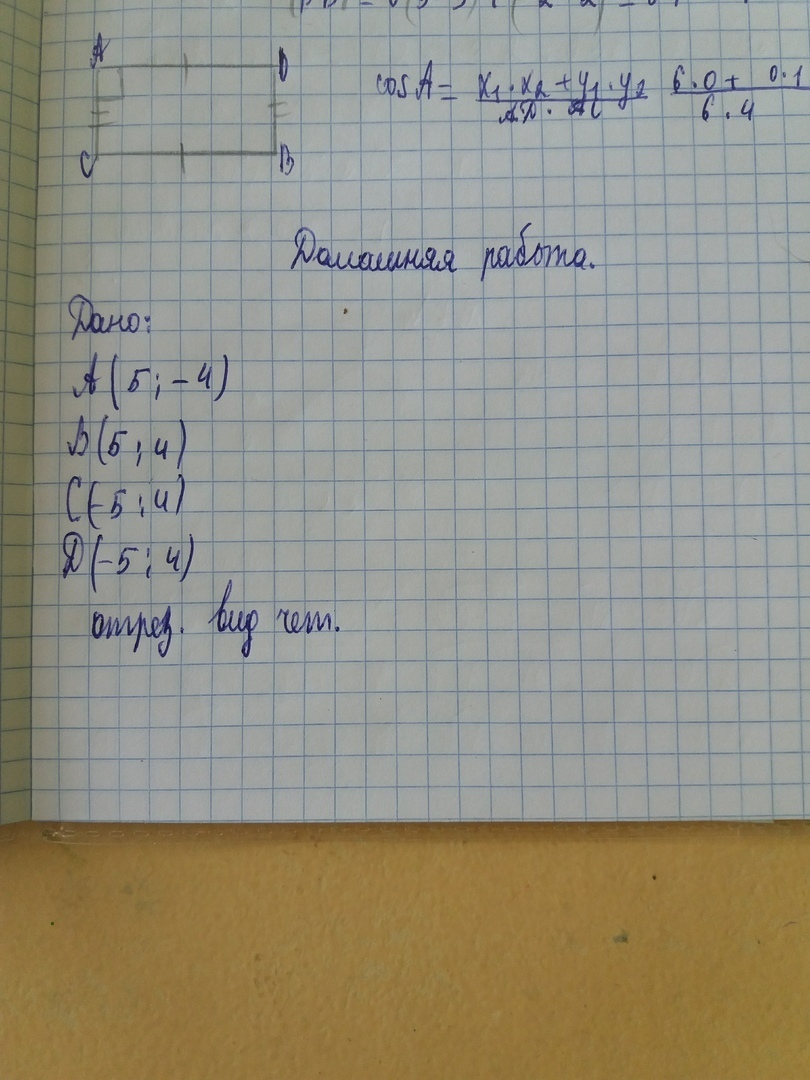 A D
C B
cos A = x₁·x₂ + y₁·y₂ / АД · АС 6·0 + 0·1 / 6·4
Домашняя работа.
Дано:
А(5; -4)
В(5; 4)
С(-5; 4)
Д(-5; 4)
опред. вид чет.